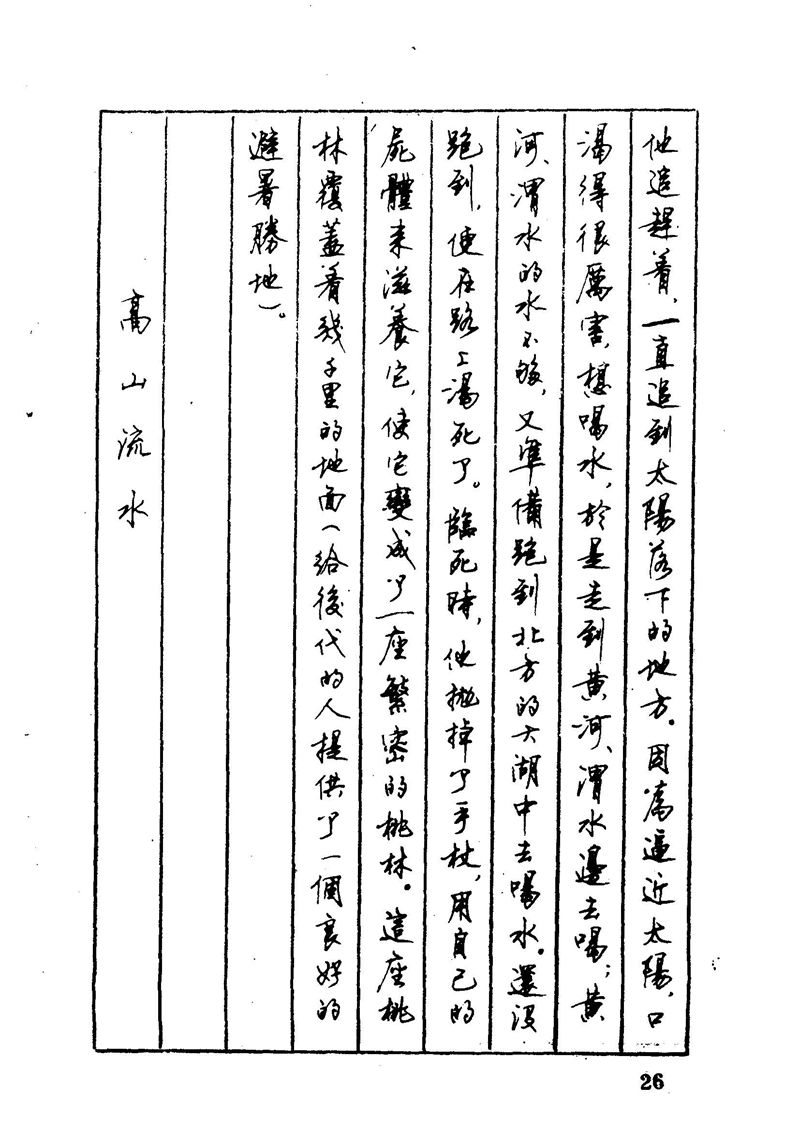 他追趕着，一直追到太陽落下的地方。因爲逼近太陽，口
渴得很厲害，想喝水，於是走到黄河、渭水邊去喝；黄
河、渭水的水不够，又準備跑到北方的大湖中去喝水。還没
跑到，便在路上渴死了。臨死時，他拋掉了手杖，用自己的
屍體来滋養它，使它變成了一座繁密的桃林。這座桃
林覆蓋着幾千里的地面（給後代的人提供了一個良好的
避暑勝地）。
高山流水
26